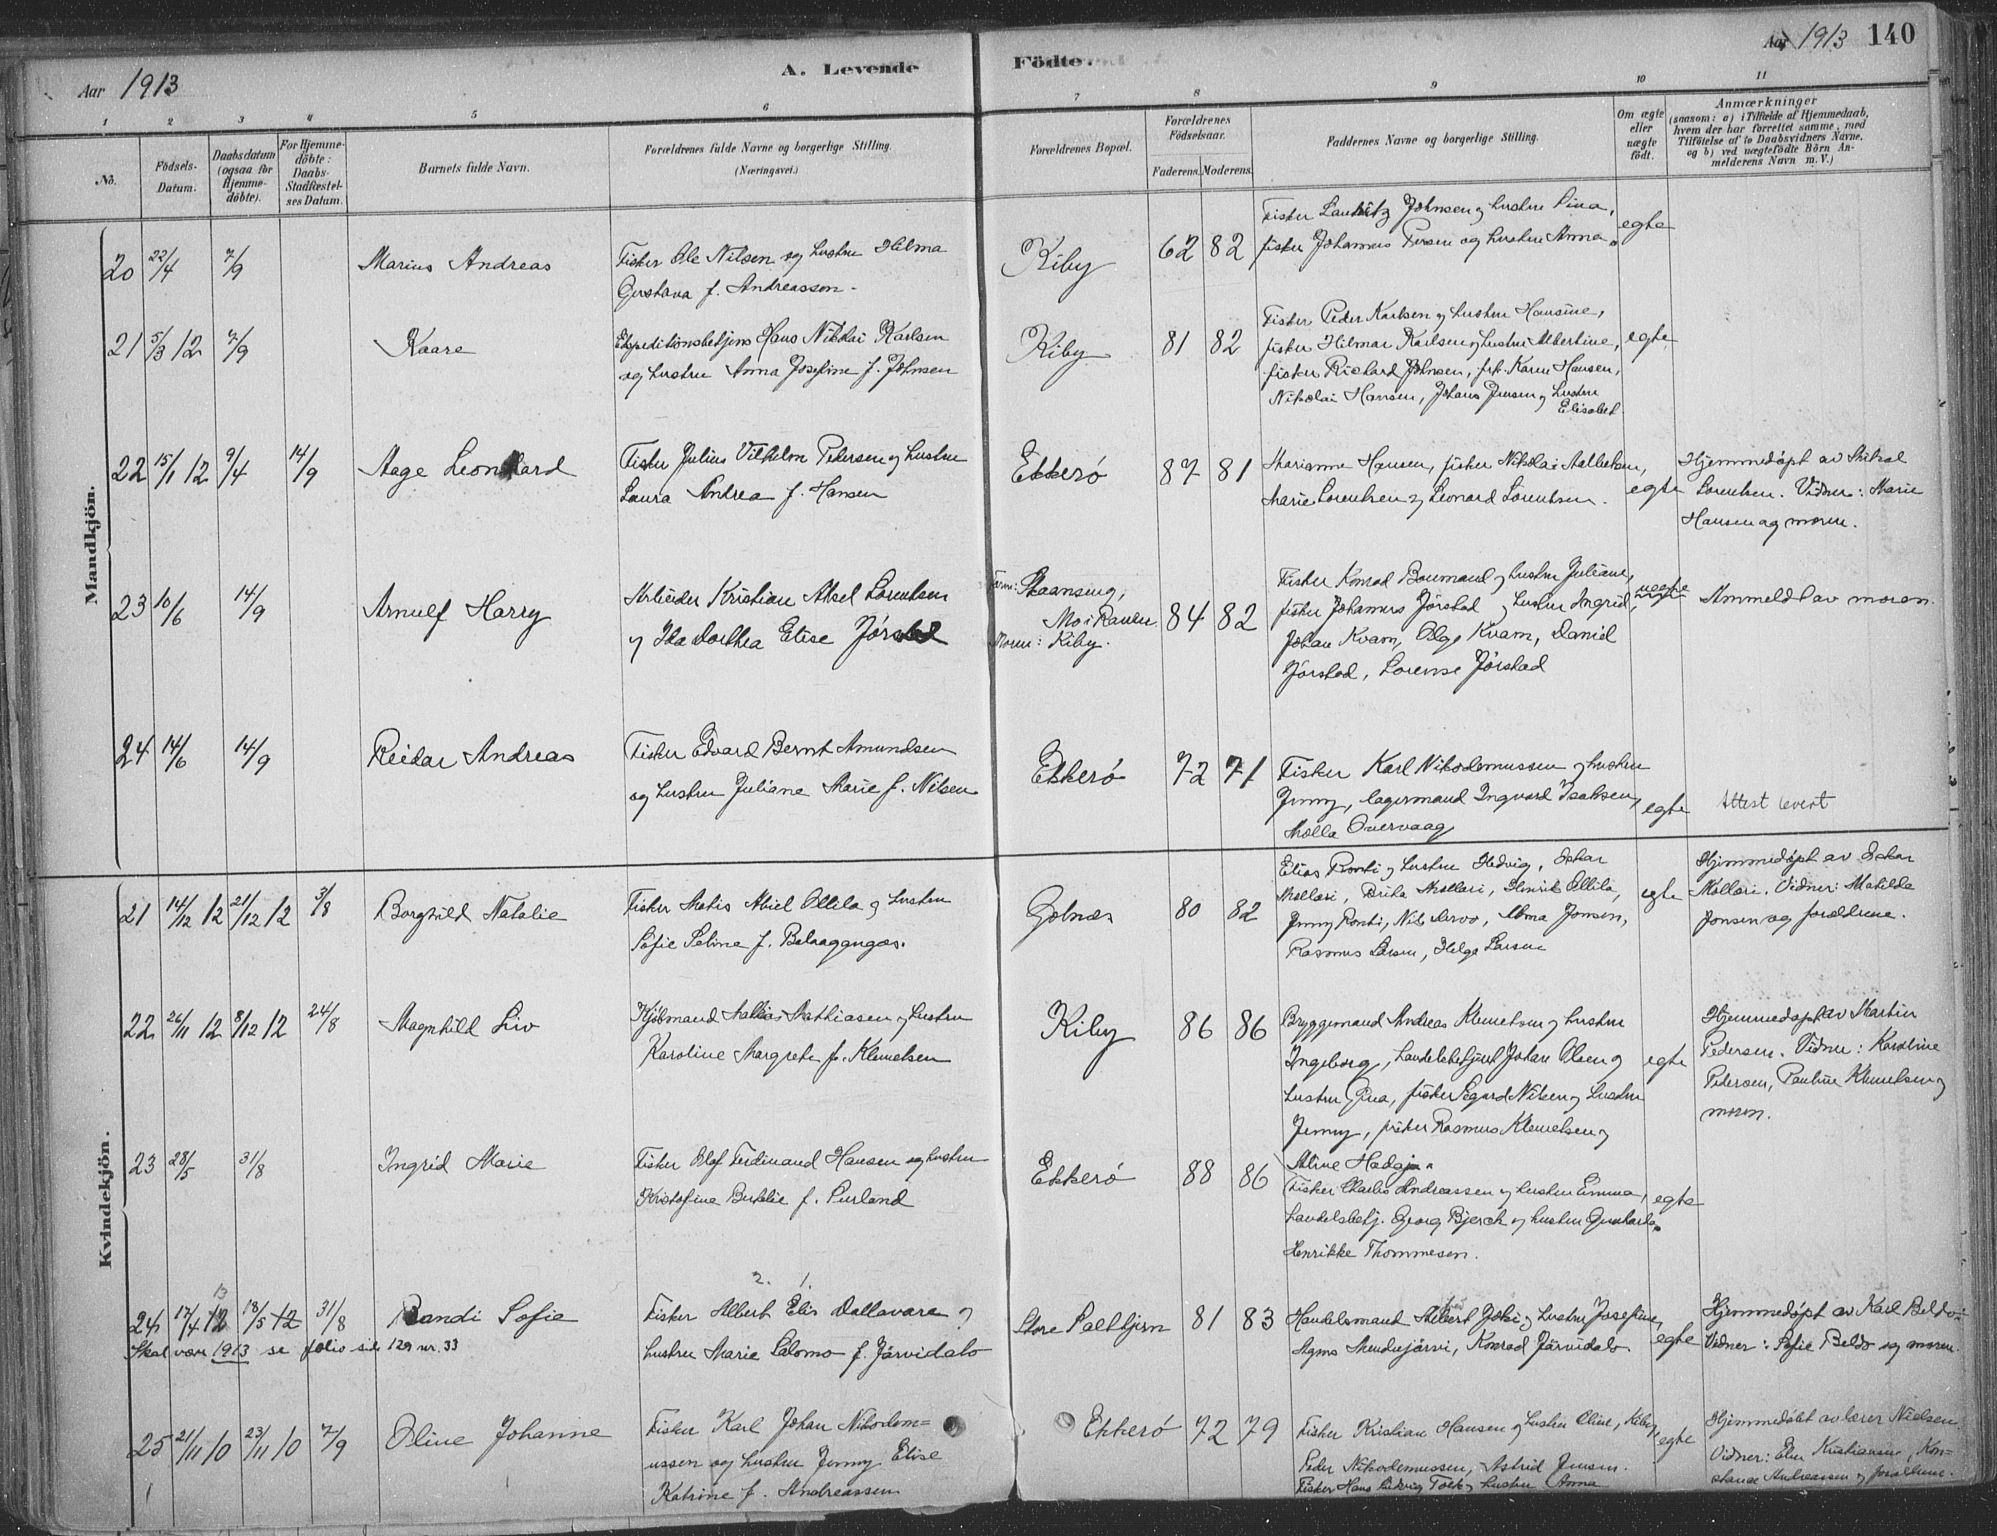 Aar 1913
A. Levende Födte.
Aar 1913 140
1 2 3 4 5 6 7 8 9 10 11
No.
Födsels-Datum.
Daabsdatum (ogsaa for Hjemme-döbte).
For Hjemme-döbte: Daabs-Stadfæstel-ses Datum.
Barnets fulde Navn.
Forældrenes fulde Navne og borgerlige Stilling.
(Næringsvei.)
Forældrenes Bopæl.
Forældrenes Födselsaar.
Faderens. Moderens.
Faddernes Navne og borgerlige Stilling.
Om ægte eller uægte födt.
Anmærkninger
(saasom: a) i Tilfælde af Hjemmedaab,
hvem der har forrettet samme, med
Tilföielse af to Daabsvidners Navne,
og b) ved uægtefödte Börn An-
melderens Navn m. V.)
Mandkjön.
20 22/4 7/9 Marius Andreas
Fisker Ole Nilsen og hustru Hilma
Gustava f. Andreassen.
Kiby 62 82
Fisker Lauritz Johnsen og hustru Lina,
fisker Johannes Persen og hustru Anna.
egte
21 5/3 12 7/9 Kaare
Ekspeditionsbetjent Hans Nikolai Karlsen
og hustru Anna Josefine f. Johnsen
Kiby 81 82
Fisker Peder Karlsen og hustru Hansine,
fisker Hilmar Karlsen og hustru Albertine,
fisker Rickard Johnsen, frk. Karen Hansen,
Nikolai Hansen, Johans Jensen og hustru
Elisabet.
egte
22 15/1 12 9/4 14/9 Aage Leonhard
Fisker Julius Vilhelm Petersen og hustru
Laura Andrea f. Hansen
Ekkerö 87 81
Marianne Hansen, fisker Nikolai
Marie Lorentsen og Leonard Lorentsen.
egte
Hjemmedöpt av
Lorentsen. Vidner: Marie
Hansen og moren.
23 10/6 14/9 Arnulf Harry
Arbeider Kristian Aksel Lorentsen
og Ida Dorthea Elise Jörstad
Mo i Ranen
Moren: Kiby.
84 82
Fisker Konrad Boumand og hustru Juliane,
fisker Johannes Jörstad og hustru Ingrid,
Johan Kvam, Olga Kvam, Daniel
Jörstad, Lorense Jörstad
uegte
Anmeldt av moren.
24 14/6 14/9 Reidar Andreas
Fisker Edvard Bernt Amundsen
og hustru Juliane Marie f. Nilsen
Ekkerö 72 71
Fisker Karl Nikodemussen og hustru
Jenny, lagermand Ingvard Isaksen,
Molla Overvaag
egte
Attest levert
Kvindekjön.
21 14/12 12 21/12 12 3/8 Borghild Natalie
Fisker Matis Abiel Ollila og hustru
Sofie Seline f.
Golnes 80 82
Elias Ronti og hustru Hedvig, Oskar
Mollari, Brita Mollari, Henrik Ollila,
Jenny Ronti, Nils Arvo, Alma Jonsen,
Rasmus Larsen, Helga Larsen
egte
Hjemmedöpt av Oskar
Mollari. Vidner: Matilda
Jonsen og forældrene.
22 26/11 12 8/12 12 24/8 Magnhild Liv
Kjöbmand Mathias Mathiasen og hustru
Karoline Margrete f. Klemetsen
Kiby 86 86
Bryggemand Andreas Klemetsen og hustru
Ingeborg, handelsbetjent Johan Olsen og
hustru Gina, fisker Segard Nilsen og hustru
Jenny, fisker Rasmus Klemetsen og
Aline
egte
Hjemmedöpt av Martin
Pedersen. Vidner: Karoline
Pedersen, Pauline Klemetsen og
moren.
23 28/5 31/8 Ingrid Marie
Fisker Olof Ferdinand Hansen og hustru
Kristofine Bertelie f. Purland
Ekkerö 88 86
Fisker Charles Andreassen og hustru Emma,
handelsbetj. Georg Bjerck og hustru
Henrikke Thommesen.
egte
13 2. 1.
24 17/4 12 18/5 12 31/8 Randi Sofie
Skal være 1913 se folio sid 129 nr. 33
Fisker Albert Elis Dallavara og
hustru Marie Salomo f. Järvidalo
Store Salttjern 81 83
Handelsmand Albert Joki og hustru Josefine,
Agnes Mendujärvi, Konrad Järvidalo.
egte
Hjemmedöpt av Karl Beldo.
Vidner: Sofie Beldo og moren.
25 21/11 10 23/11 10 7/9 Oline Johanne
Fisker Karl Johan Nikodem=
ussen og hustru Jenny Elise
Katrine f. Andreassen
Ekkerö 72 79
Fisker Kristian Hansen og hustru Oline, Kiby,
Peder Nikodemussen, Astrid Jensen.
Fisker Hans Ludvig Falk og hustru Anna
egte
Hjemmedöbt av lærer Nielsen.
Vidner: Elen Kristiansen, Kon=
stance Andreassen og forældrene.